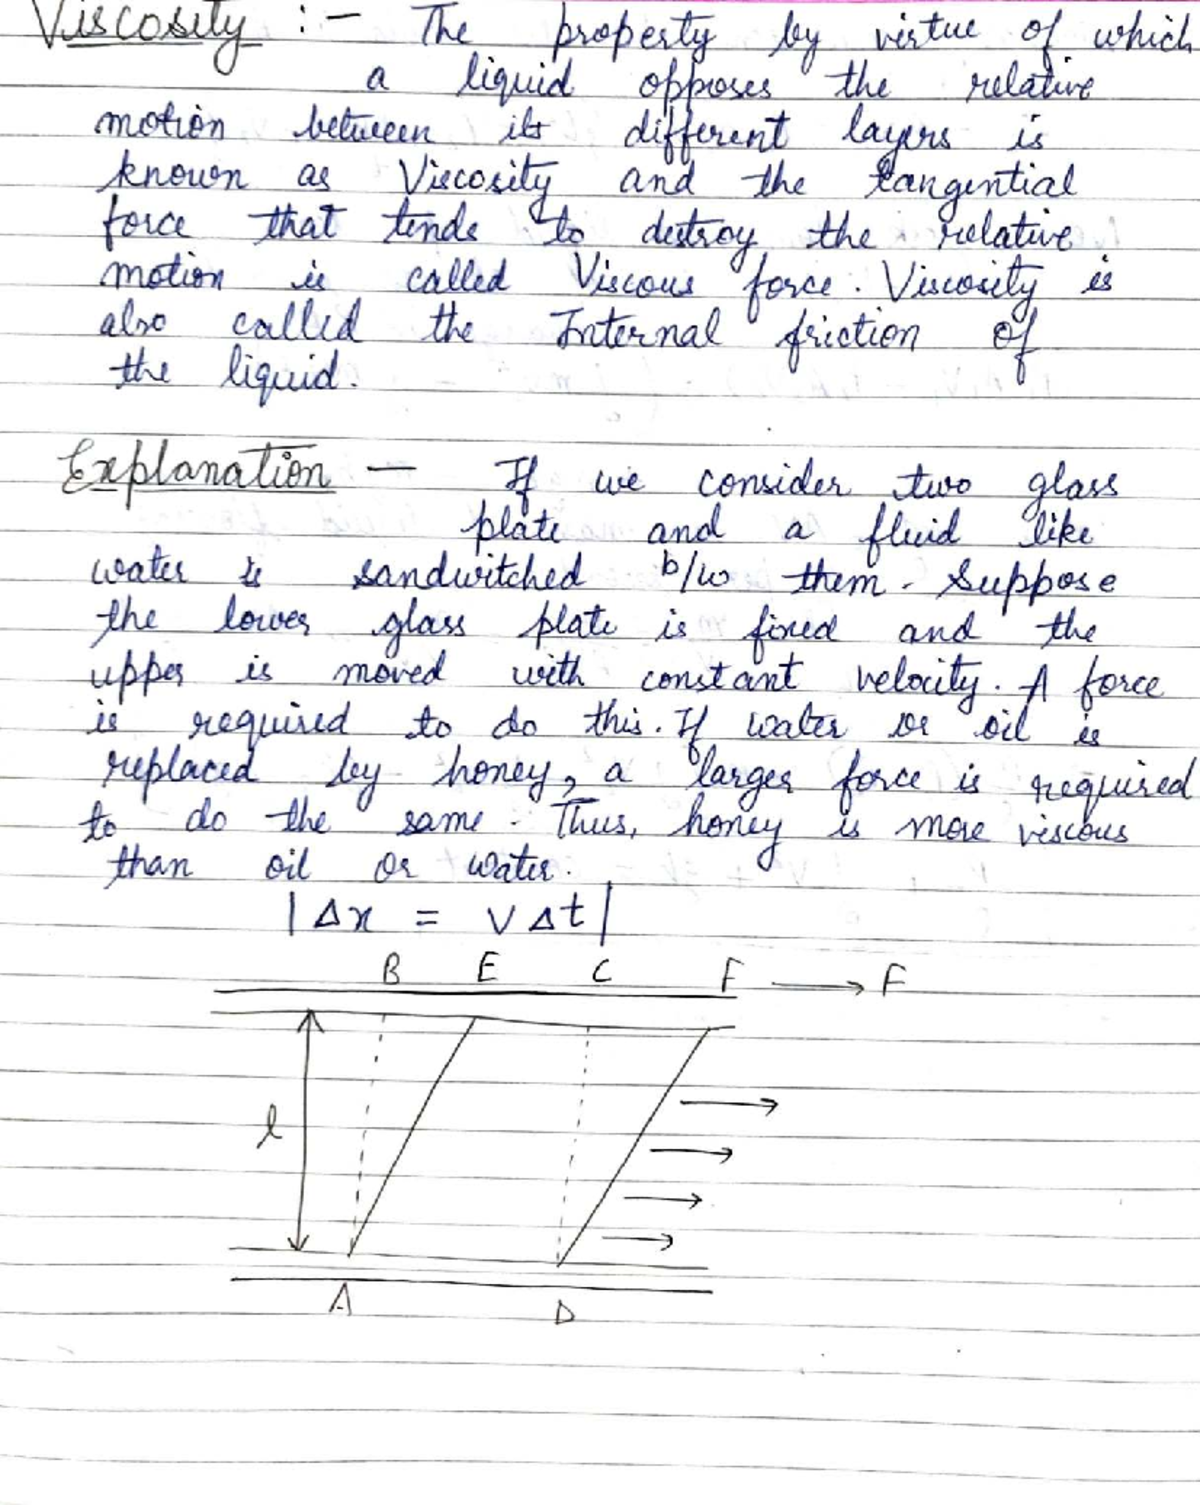 Viscosity :- The property by virtue of which
a liquid opposes the relative
motion between its different layers is
known as Viscosity and the tangential
force that tends to destroy the relative
motion is called Viscous force. Viscosity is
also called the Internal friction of
the liquid.
Explanation — If we consider two glass
plate and a fluid like
water is sandwitched b/w them. Suppose
the lower glass plate is fixed and the
upper is moved with constant velocity. A force
is required to do this. If water or oil is
replaced by honey, a larger force is required
to do the same. Thus, honey is more viscous
than oil or water.
|Δx = vΔt|
B E C F → F
l
A D